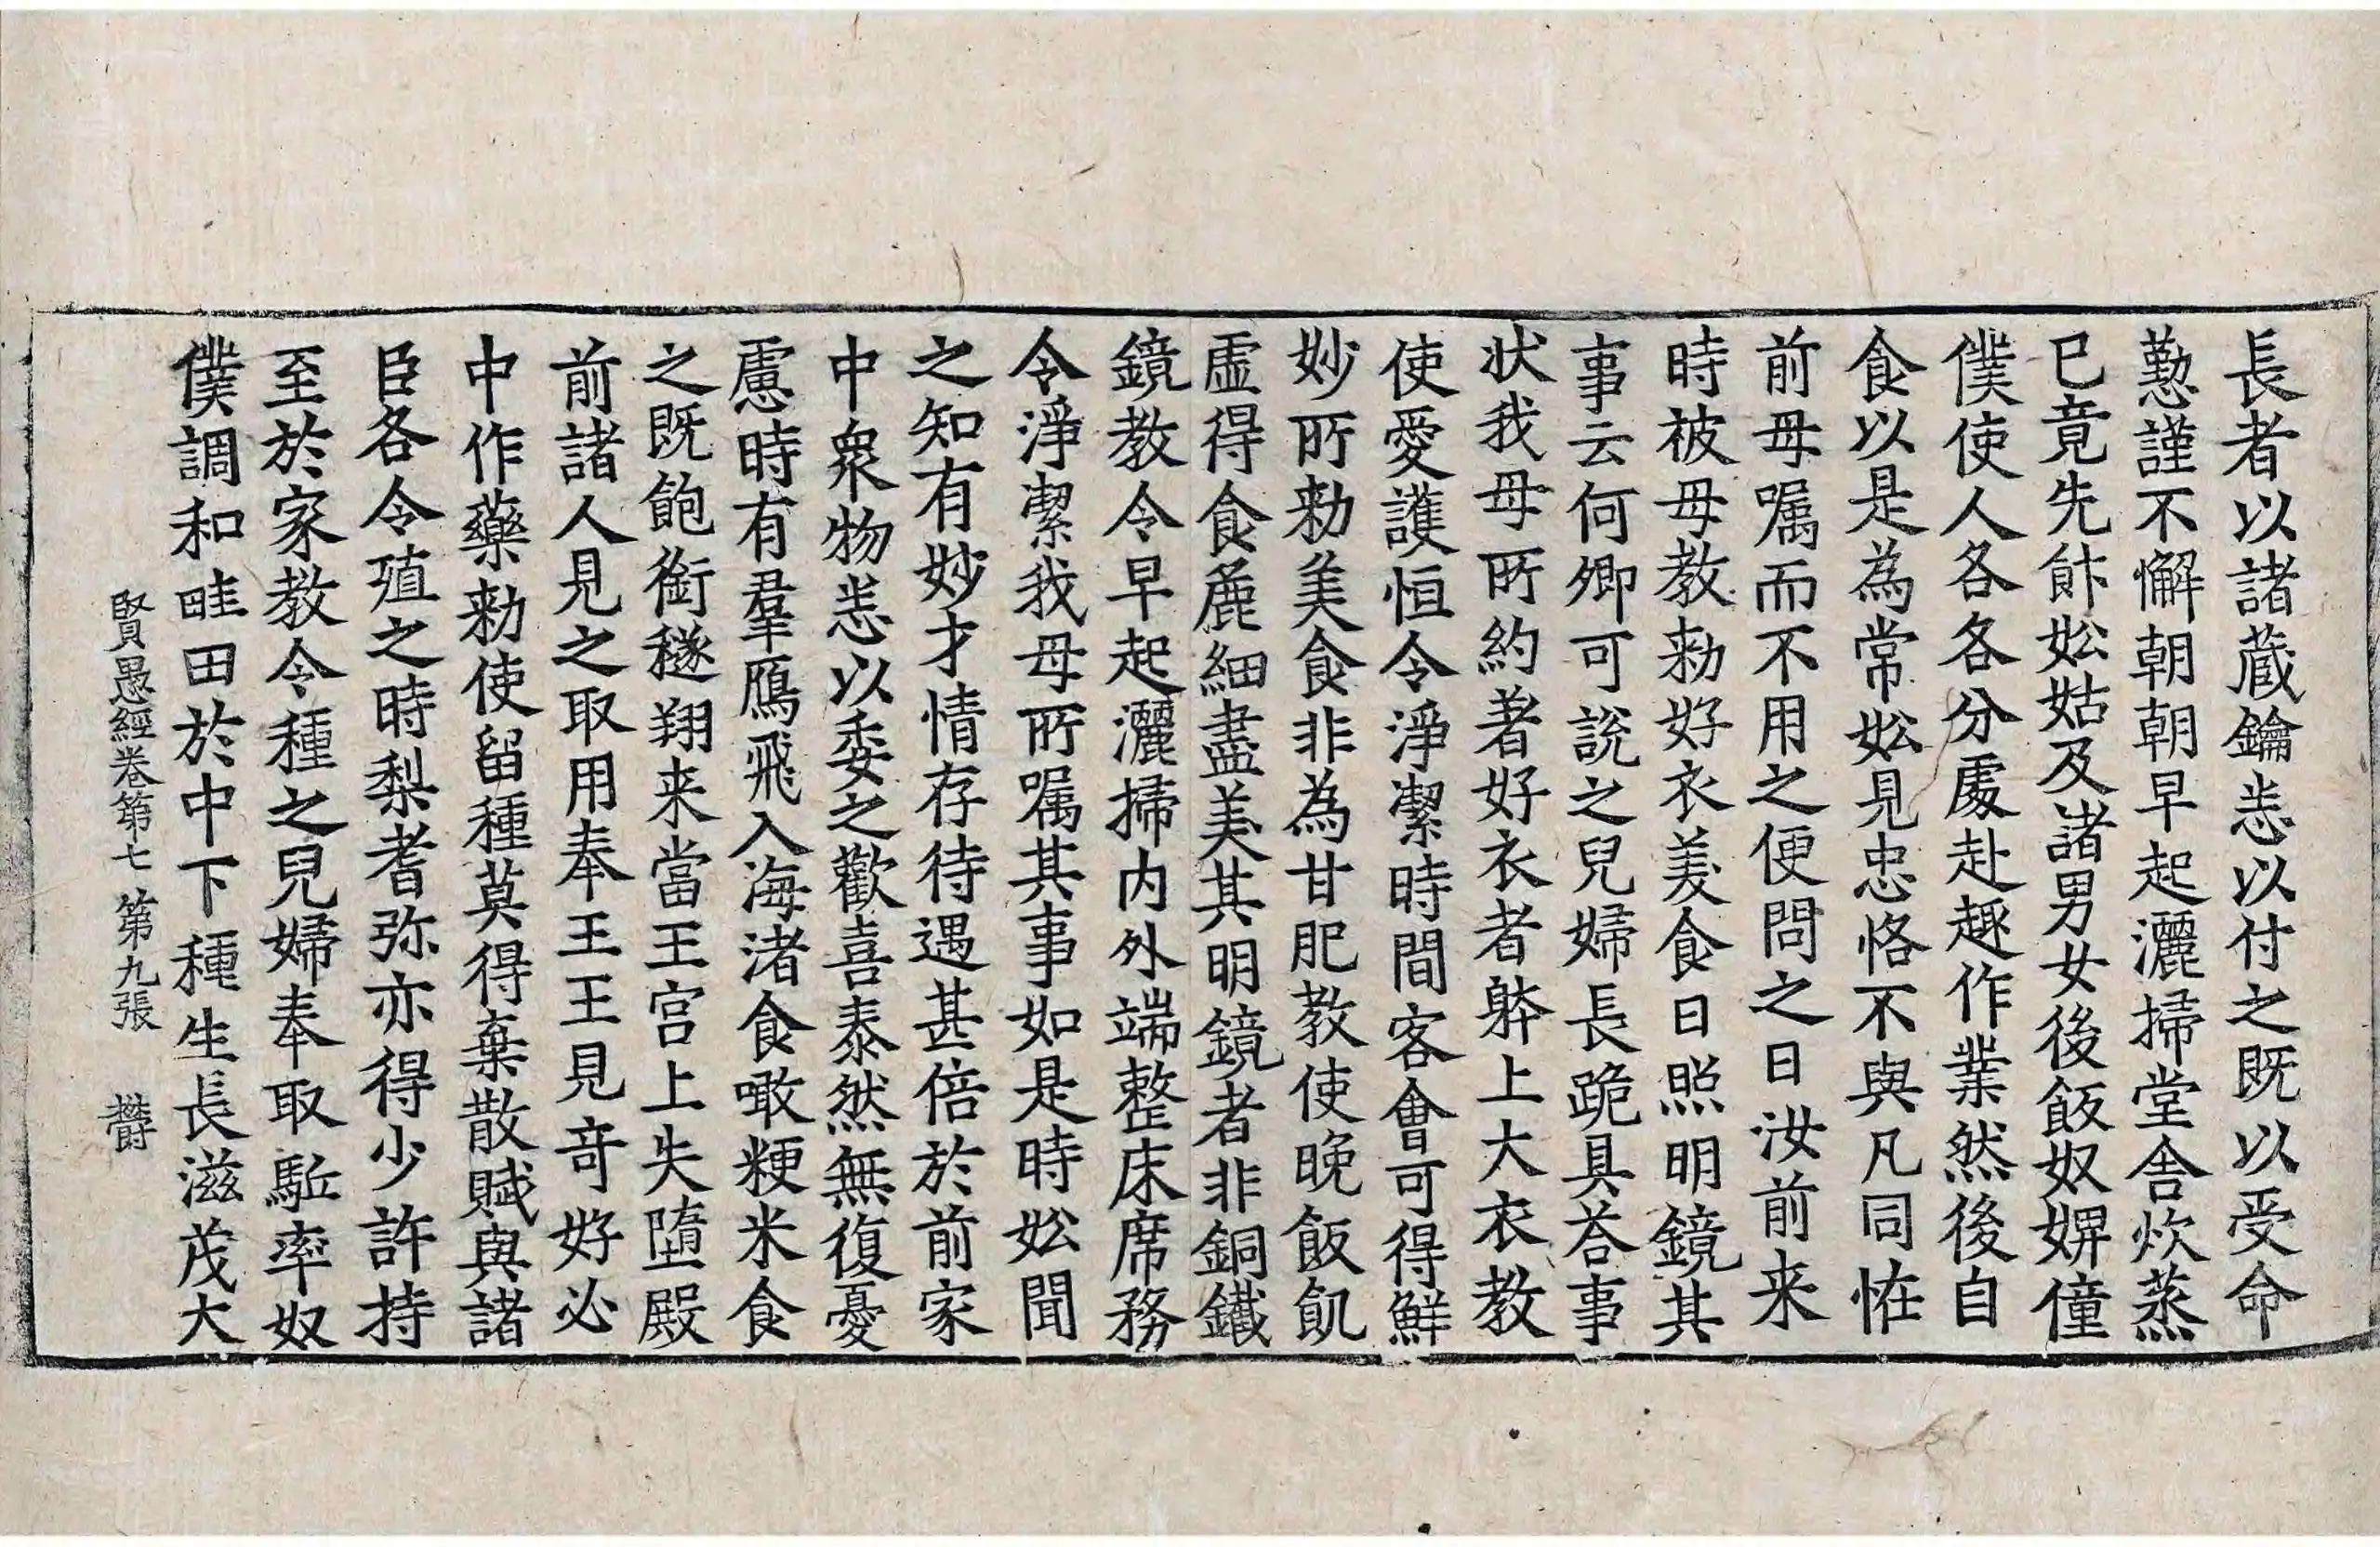 長者以諸蔵鑰悉以付之既以受命
懃謹不懈朝朝早起灑掃堂舎炊蒸
已竟先飰妐姑及諸男女後飯奴婢僮
僕使人各各分處赴趣作業然後自
食以是為常妐見忠恪不與凡同恠
前母嘱而不用之便問之曰汝前来
時被母教勑好衣美食日照明鏡其
事云何卿可說之兒婦長跪具荅事
状我母所約著好衣者躰上大衣教
使愛護恒令淨潔時間客會可得鮮
妙所勑美食非為甘肥教使晚飯飢
虛得食麁細盡美其明鏡者非銅鐵
鏡教令早起灑掃内外端整床席務
令淨潔我母所嘱其事如是時妐聞
之知有妙才情存待遇甚倍於前家
中衆物悉以委之歡喜泰然無復憂
慮時有羣鴈飛入海渚食噉粳米食
之既飽銜穟翔来當王宫上失墮殿
前諸人見之取用奉王王見竒好必
中作藥勑使留種莫得棄散賦與諸
臣各令殖之時梨耆弥亦得少許持
至於家教令種之兒婦奉取駈率奴
僕調和畦田於中下種生長滋茂大
賢愚經卷第七 第九張 欎